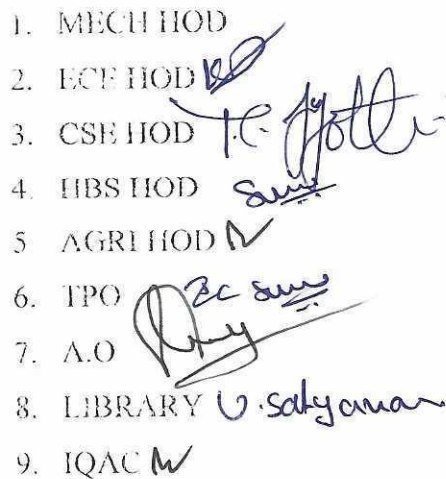 1. MECH HOD
2. ECE HOD
3. CSE HOD T.C. Jyothi
4. HBS HOD
5 AGRI HOD
6. TPO
7. A.O
8. LIBRARY U. Satyanar
9. IQAC